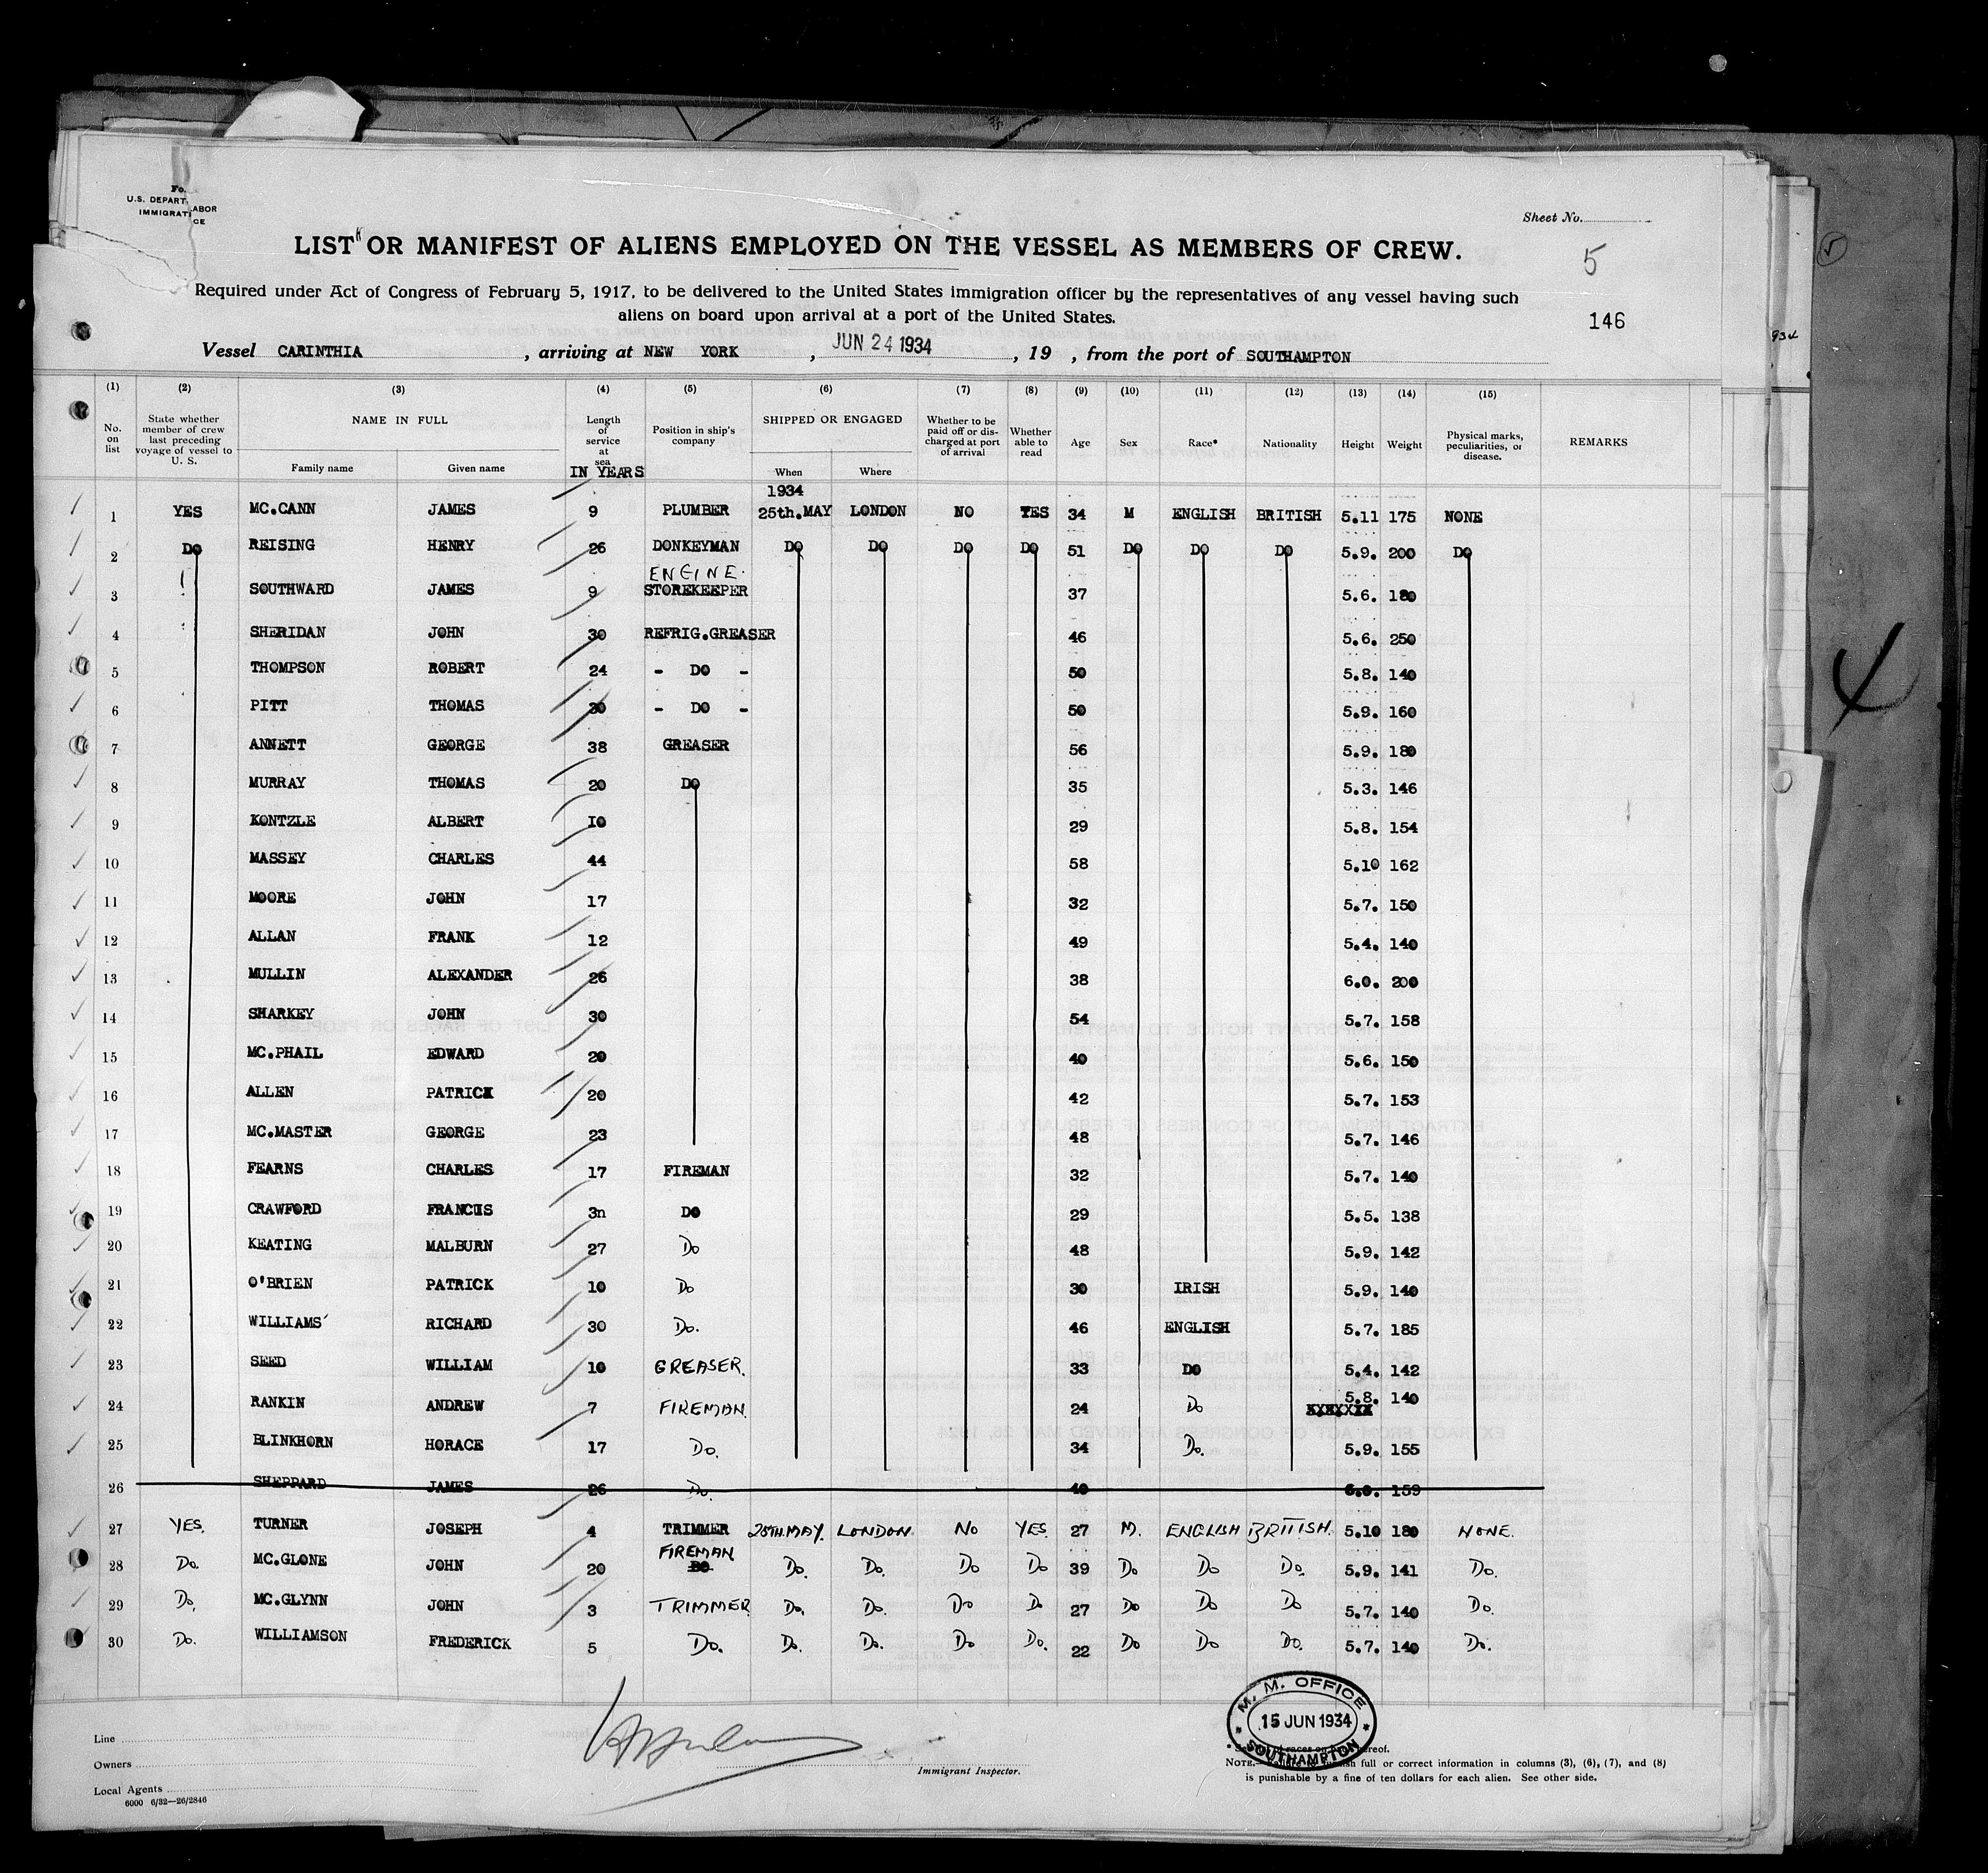 Fo
U.S. DEPART LABOR
IMMIGRATI CE
Sheet No.
LIST OR MANIFEST OF ALIENS EMPLOYED ON THE VESSEL AS MEMBERS OF CREW.
5
Required under Act of Congress of February 5, 1917, to be delivered to the United States immigration officer by the representatives of any vessel having such
aliens on board upon arrival at a port of the United States.
146
Vessel CARINTHIA, arriving at NEW YORK, JUN 24 1934, 19 , from the port of SOUTHAMPTON
(1) (2) (3) (4) (5) (6) (7) (8) (9) (10) (11) (12) (13) (14) (15)
No. on list State whether member of crew last preceding voyage of vessel to U. S. NAME IN FULL Family name Given name Length of service at sea IN YEARS Position in ship's company SHIPPED OR ENGAGED When Where Whether to be paid off or discharged at port of arrival Whether able to read Age Sex Race* Nationality Height Weight Physical marks, peculiarities, or disease. REMARKS
1934
1 YES MC.CANN JAMES 9 PLUMBER 25th.MAY LONDON NO YES 34 M ENGLISH BRITISH 5.11 175 NONE
2 DO REISING HENRY 26 DONKEYMAN DO DO DO DO 51 DO DO DO 5.9. 200 DO
3 SOUTHWARD JAMES 9 ENGINE. STOREKEEPER 37 5.6. 180
4 SHERIDAN JOHN 30 REFRIG.GREASER 46 5.6. 250
5 THOMPSON ROBERT 24 - DO - 50 5.8. 140
6 PITT THOMAS 30 - DO - 50 5.9. 160
7 ANNETT GEORGE 38 GREASER 56 5.9. 180
8 MURRAY THOMAS 20 DO 35 5.3. 146
9 KONTZLE ALBERT I0 29 5.8. 154
10 MASSEY CHARLES 44 58 5.10 162
11 MOORE JOHN 17 32 5.7. 150
12 ALLAN FRANK 12 49 5.4. 140
13 MULLIN ALEXANDER 26 38 6.0. 200
14 SHARKEY JOHN 30 54 5.7. 158
15 MC.PHAIL EDWARD 20 40 5.6. 150
16 ALLEN PATRICK 20 42 5.7. 153
17 MC.MASTER GEORGE 23 48 5.7. 146
18 FEARNS CHARLES 17 FIREMAN 32 5.7. 140
19 CRAWFORD FRANCIS 3n DO 29 5.5. 138
20 KEATING MALBURN 27 Do 48 5.9. 142
21 O'BRIEN PATRICK 10 Do 30 IRISH 5.9. 140
22 WILLIAMS RICHARD 30 Do. 46 ENGLISH 5.7. 185
23 SEED WILLIAM 10 GREASER. 33 DO 5.4. 142
24 RANKIN ANDREW 7 FIREMAN. 24 Do 5.8. 140
25 BLINKHORN HORACE 17 Do. 34 Do. 5.9. 155
26 SHEPPARD JAMES 26 Do. 40 6.0. 159
27 YES. TURNER JOSEPH 4 TRIMMER 25TH.MAY. LONDON. NO YES. 27 M. ENGLISH BRITISH. 5.10 180 NONE.
28 Do. MC.GLONE JOHN 20 FIREMAN DO Do. Do. Do Do 39 Do Do Do. 5.9. 141 Do.
29 Do. MC.GLYNN JOHN 3 TRIMMER Do. Do. Do Do 27 Do Do Do 5.7. 140 Do.
30 Do. WILLIAMSON FREDERICK 5 Do. Do. Do. Do Do. 22 Do Do Do. 5.7. 140 Do.
M. M. OFFICE
15 JUN 1934
SOUTHAMPTON
Line
Owners
Local Agents
6000 6/32—26/2846
Immigrant Inspector.
* races on hereof.
NOTE.— full or correct information in columns (3), (6), (7), and (8)
is punishable by a fine of ten dollars for each alien. See other side.